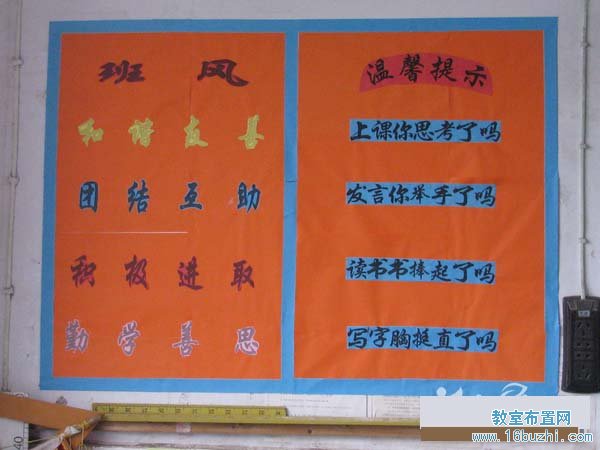 班风
和谐友善
团结互助
积极进取
勤学善思
温馨提示
上课你思考了吗
发言你举手了吗
读书书捧起了吗
写字胸挺直了吗
教室布置网
www.16buzhi.com